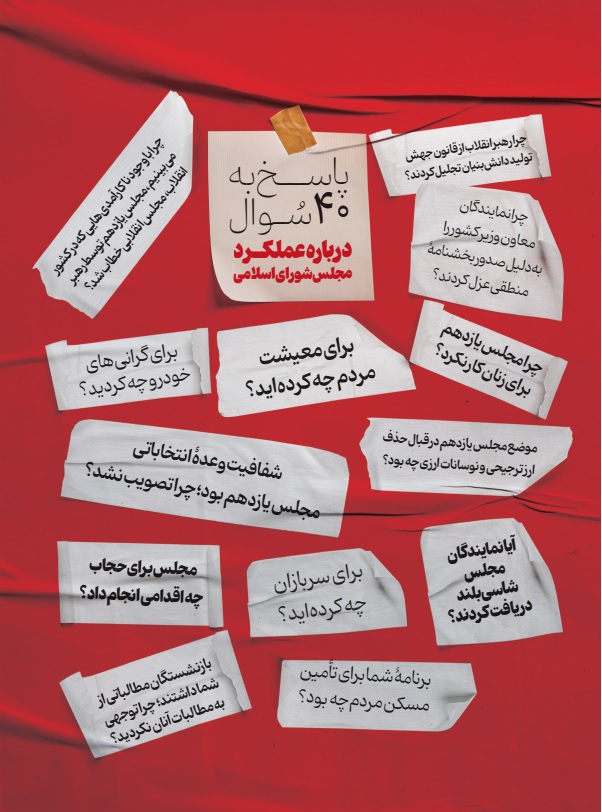 پاسخ به
۴۰ سُوال
درباره عملکرد
مجلس شورای اسلامی
چرا رهبر انقلاب از قانون جهش
تولید دانش‌بنیان تجلیل کردند؟
چرا با وجود ناکارآمدی‌هایی که در کشور
می‌بینیم، مجلس یازدهم توسط رهبر
انقلاب، مجلس انقلابی خطاب شد؟
چرا نمایندگان
معاون وزیر کشور را
به دلیل صدور بخشنامهٔ
منطقی عزل کردند؟
برای گرانی‌های
خودرو چه کردید؟
برای معیشت
مردم چه کرده‌اید؟
چرا مجلس یازدهم
برای زنان کار نکرد؟
شفافیت وعدهٔ انتخاباتی
مجلس یازدهم بود؛ چرا تصویب نشد؟
موضع مجلس یازدهم در قبال حذف
ارز ترجیحی و نوسانات ارزی چه بود؟
مجلس برای حجاب
چه اقدامی انجام داد؟
برای سربازان
چه کرده‌اید؟
آیا نمایندگان
مجلس
شاسی‌بلند
دریافت کردند؟
بازنشستگان مطالباتی از
شما داشتند؛ چرا توجهی
به مطالبات آنان نکردید؟
برنامهٔ شما برای تأمین
مسکن مردم چه بود؟